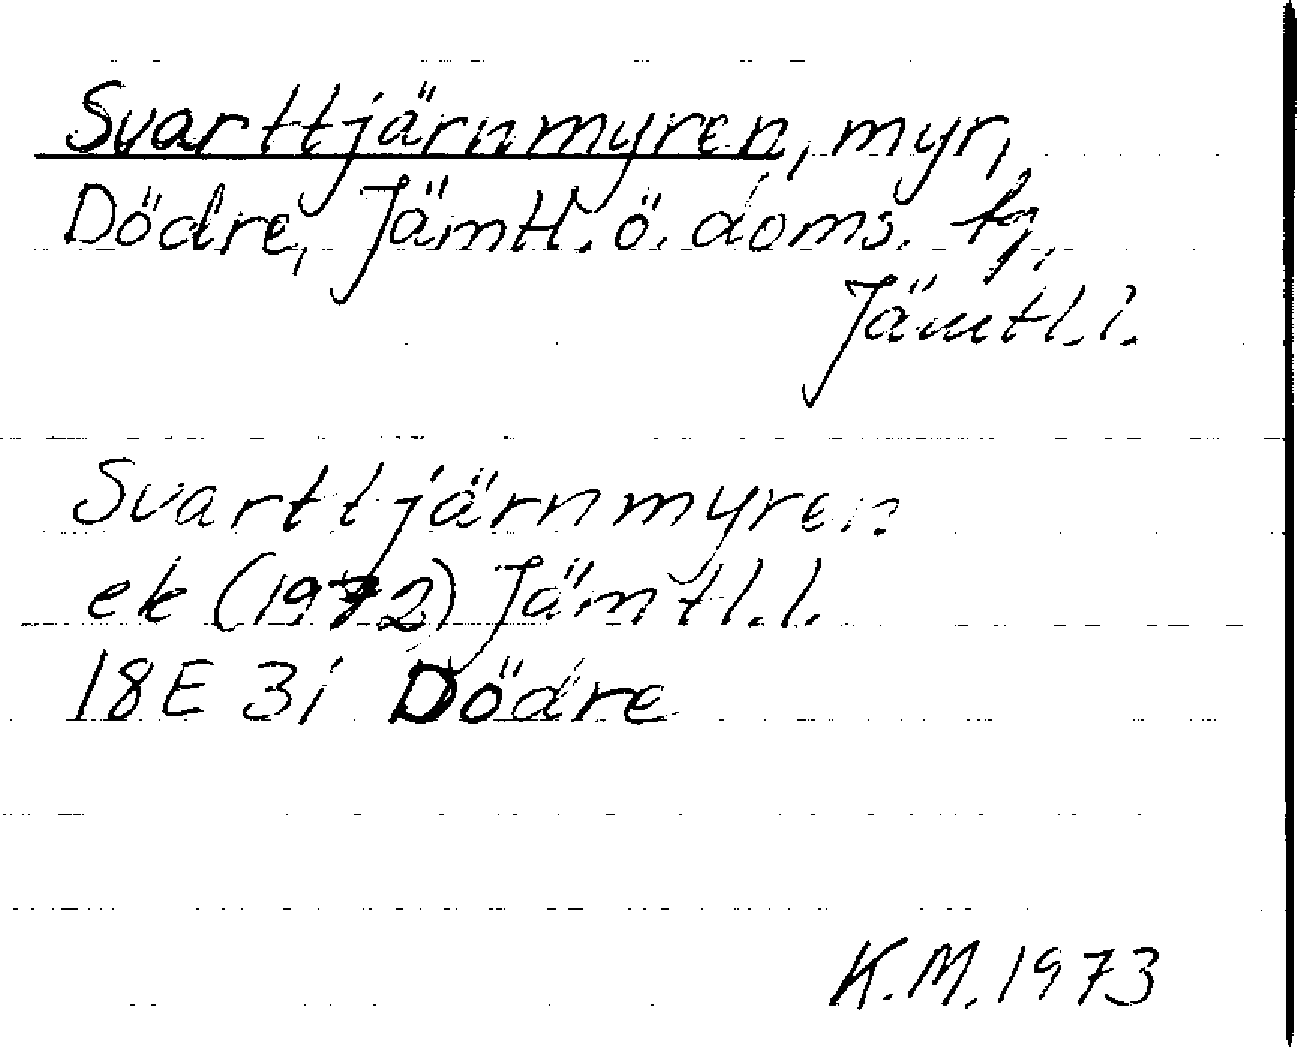 Svarttjärnmyren, myr,
Dödre, Jämtl. ö. doms. tg,
Jämtl.l.
Svarttjärnmyren
ek (1972) Jämtl.l.
18E 3i Dödre
K.M. 1973